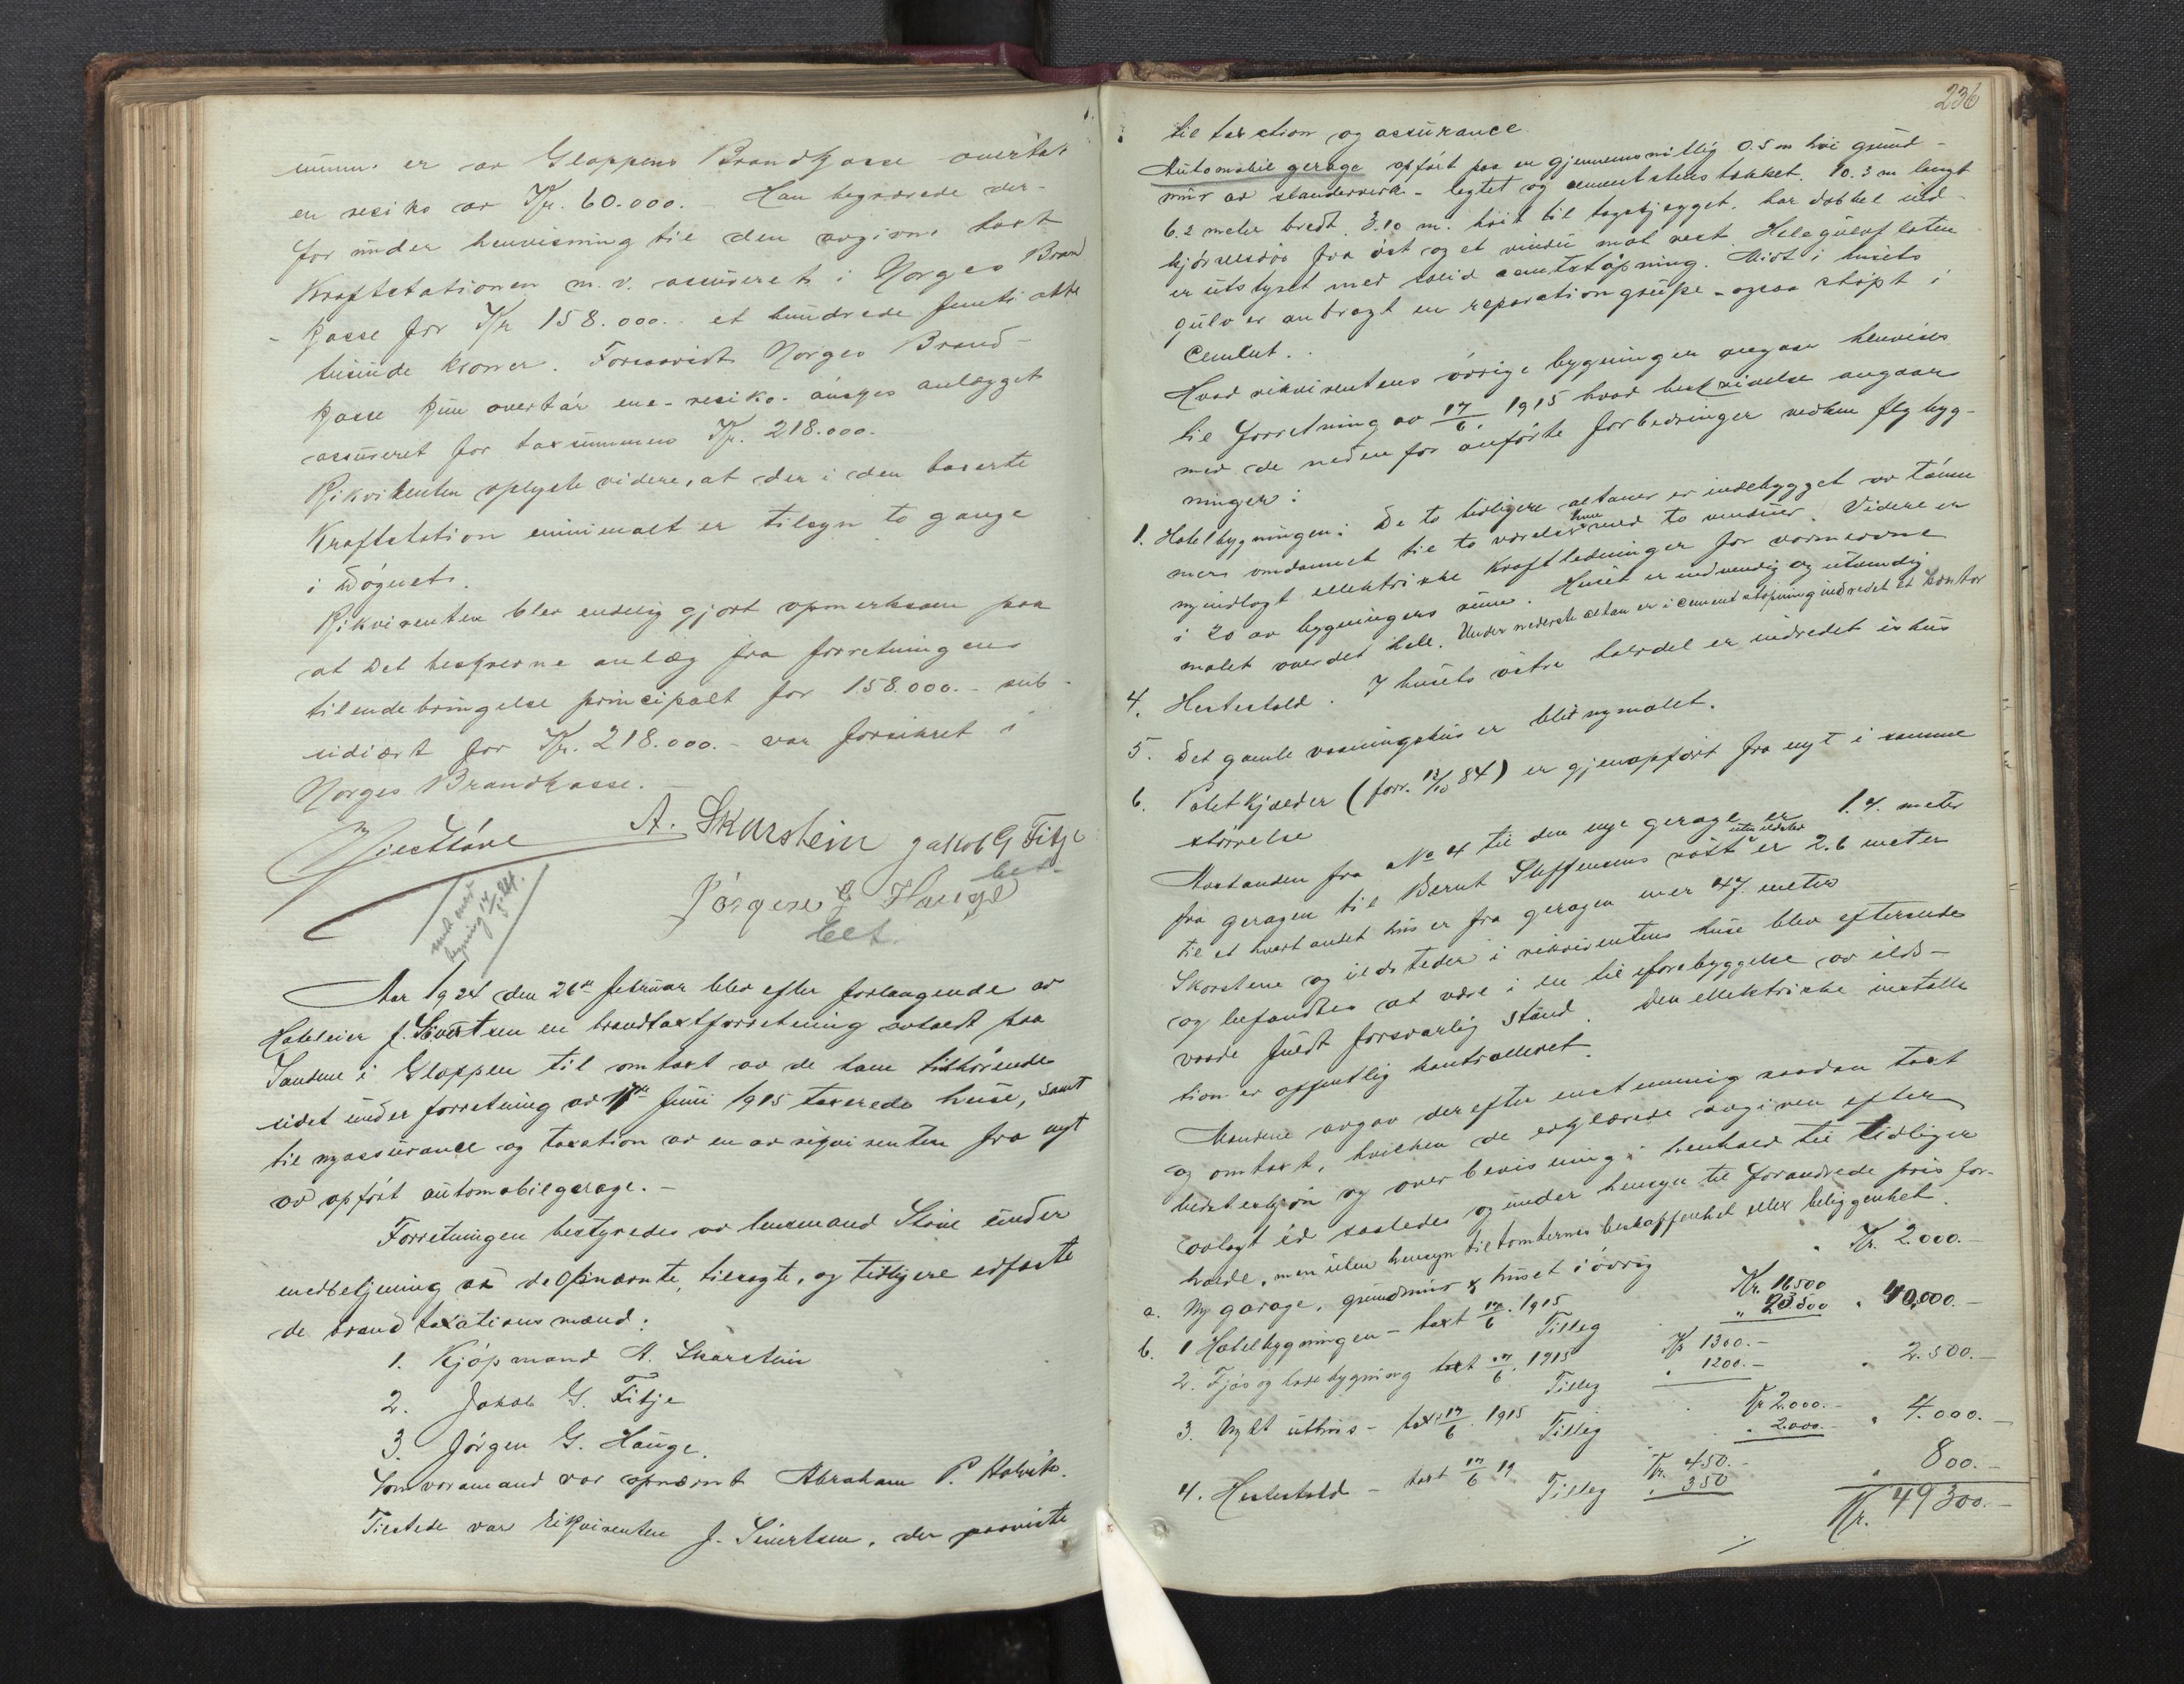 summ. er av Gloppens Brandkasse overtat
en resiko av Kr. 60.000. - Han begjærede der-
for under henvisning til den avgivne taxt
Kraftstationen m. v. assureret i Norges Brand
kasse for Kr 158.000.. et hundrede femti otte
tusinde kroner. Forsaavidt Norges Brand-
kasse kun overtar ene-resiko. ønskes anlægget
assureret for taxsummens Kr. 218.000.
Rikvirenten oplyste videre, at der i den taxerte
Kraftstation minimalt er tilsyn to gange
i døgnet.
Rikvirenten blev endelig gjort opmerksom paa
at det beskrevne anlæg fra forretningens
tilendebringelse principalt for 158.000.- sub-
sidiært for Kr. 218.000.- var forsikret i
Norges Brandkasse. -
A. Skarstein Jakob G Fitje
Jørgen G Hauge bet.
bet.
Aar 1924 den 26de Februar blev efter forlangende av
Hoteleier J. Sivertsen en brandtaxtforretning avholdt paa
Sandene i Gloppen til omtaxt av de ham tilhørende
sidst under forretning av 17de Juni 1915 taxerede huse, samt
til nyassurance og taxation av en av reqvirenten fra nyt
av opført automobilgarage. -
Forretningen bestyredes av lensmand Støve under
medbetjening av de opnævnte, tilsagte, og tidligere edfæste
de brandtaxationsmænd:
1. Kjøpmand A. Skarstein
2. Jakob G. Fitje
3. Jørgen G. Hauge.
Som varamand var opnævnt Abraham P. Holvik.
Tilstede var Rikvirenten J. Sivertsen, der paaviste
236
til taxtion og assurance.
Automobil gerage opført paa en gjennemsnitlig 0.5 m høi grund-
mur av standerverk - legtet og cementstenstækket. 10.3 m langt
6.2 meter bredt. 3.10 m. høit til tagskjægget. har dobbel ud-
kjørselsdør fra øst og et vindu mot vest. Hele gulvflaten
er utstyret med solid cemtstøpning. Midt i husets
gulv er anbragt en reparationgrube - ogsaa støpt i
Cement.
Hvad rikvirentens øvrige bygninger angaar henvises
til forretning av 17/6 1915 hvad beskrivelse angaar
med de nedenfor anførte forbedringer vedkm flg byg-
ninger:
1. Hotelbygningen: De to tidligere altaner er indebygget av tøm
mer omdannet til to værelser hver med to vinduer. Videre er
nyindlagt ellektriske Kraftledninger for varmeovne
i 20 av bygningens rum. Huset er indvendig og utvendig
malet over det hele. Under nederste altan er i cementstøpning indredet et kontor
4. Hestestald. I husets østre halvdel er indredet ishus
5. Det gamle vaaningshus er blit nymalet.
6. Potetkjælder (forr. 13/10 84) er gjenopført fra nyt i samme
størrelse
Avstanden fra No 4 til den nye gerage er 1.4. meter
fra geragen til Bernt Steffensens naust uten ildsted er 2.6 meter
til et hvert andet hus er fra geragen mer 47. meter
Skorstene og ildsteder i rikvirentens huse blev efterseede
og befandtes at være i en til forebyggelse av ilds-
vaade fuldt forsvarlig stand. Den ellektriske installa
tion er offentlig kontrolleret.
Mændene avgav derefter enstemmig saadan taxt
og omtaxt, hvilken de erklærede avgiven efter
bedste skjøn og overbevisning i henhold til tidligere
avlagt ed saaledes og under hensyn til forandrede pris for-
holde, men uten hensyn til tomternes beskaffenhet eller beliggenhet.
a. Ny garage, grundmur & huset i øvrig " Kr. 2.000.-
b. 1 Hotelbygningen - taxt 17/6. 1915 Kr. 16500
Tilleg " 23500 " 40.000.-
2. Fjøs og ladebygning taxt 17/6. 1915 Kr 1300.-
Tilleg " 1200.- " 2.500.-
3. Nyt uthus - taxt 17/6. 1915 Kr 2.000.-
Tilleg " 2.000.- " 4.000.-
4. Hestestald - taxt 17/6 19 Kr. 450.-
Tilleg " 350 " 800.-
Kr. 49300.-